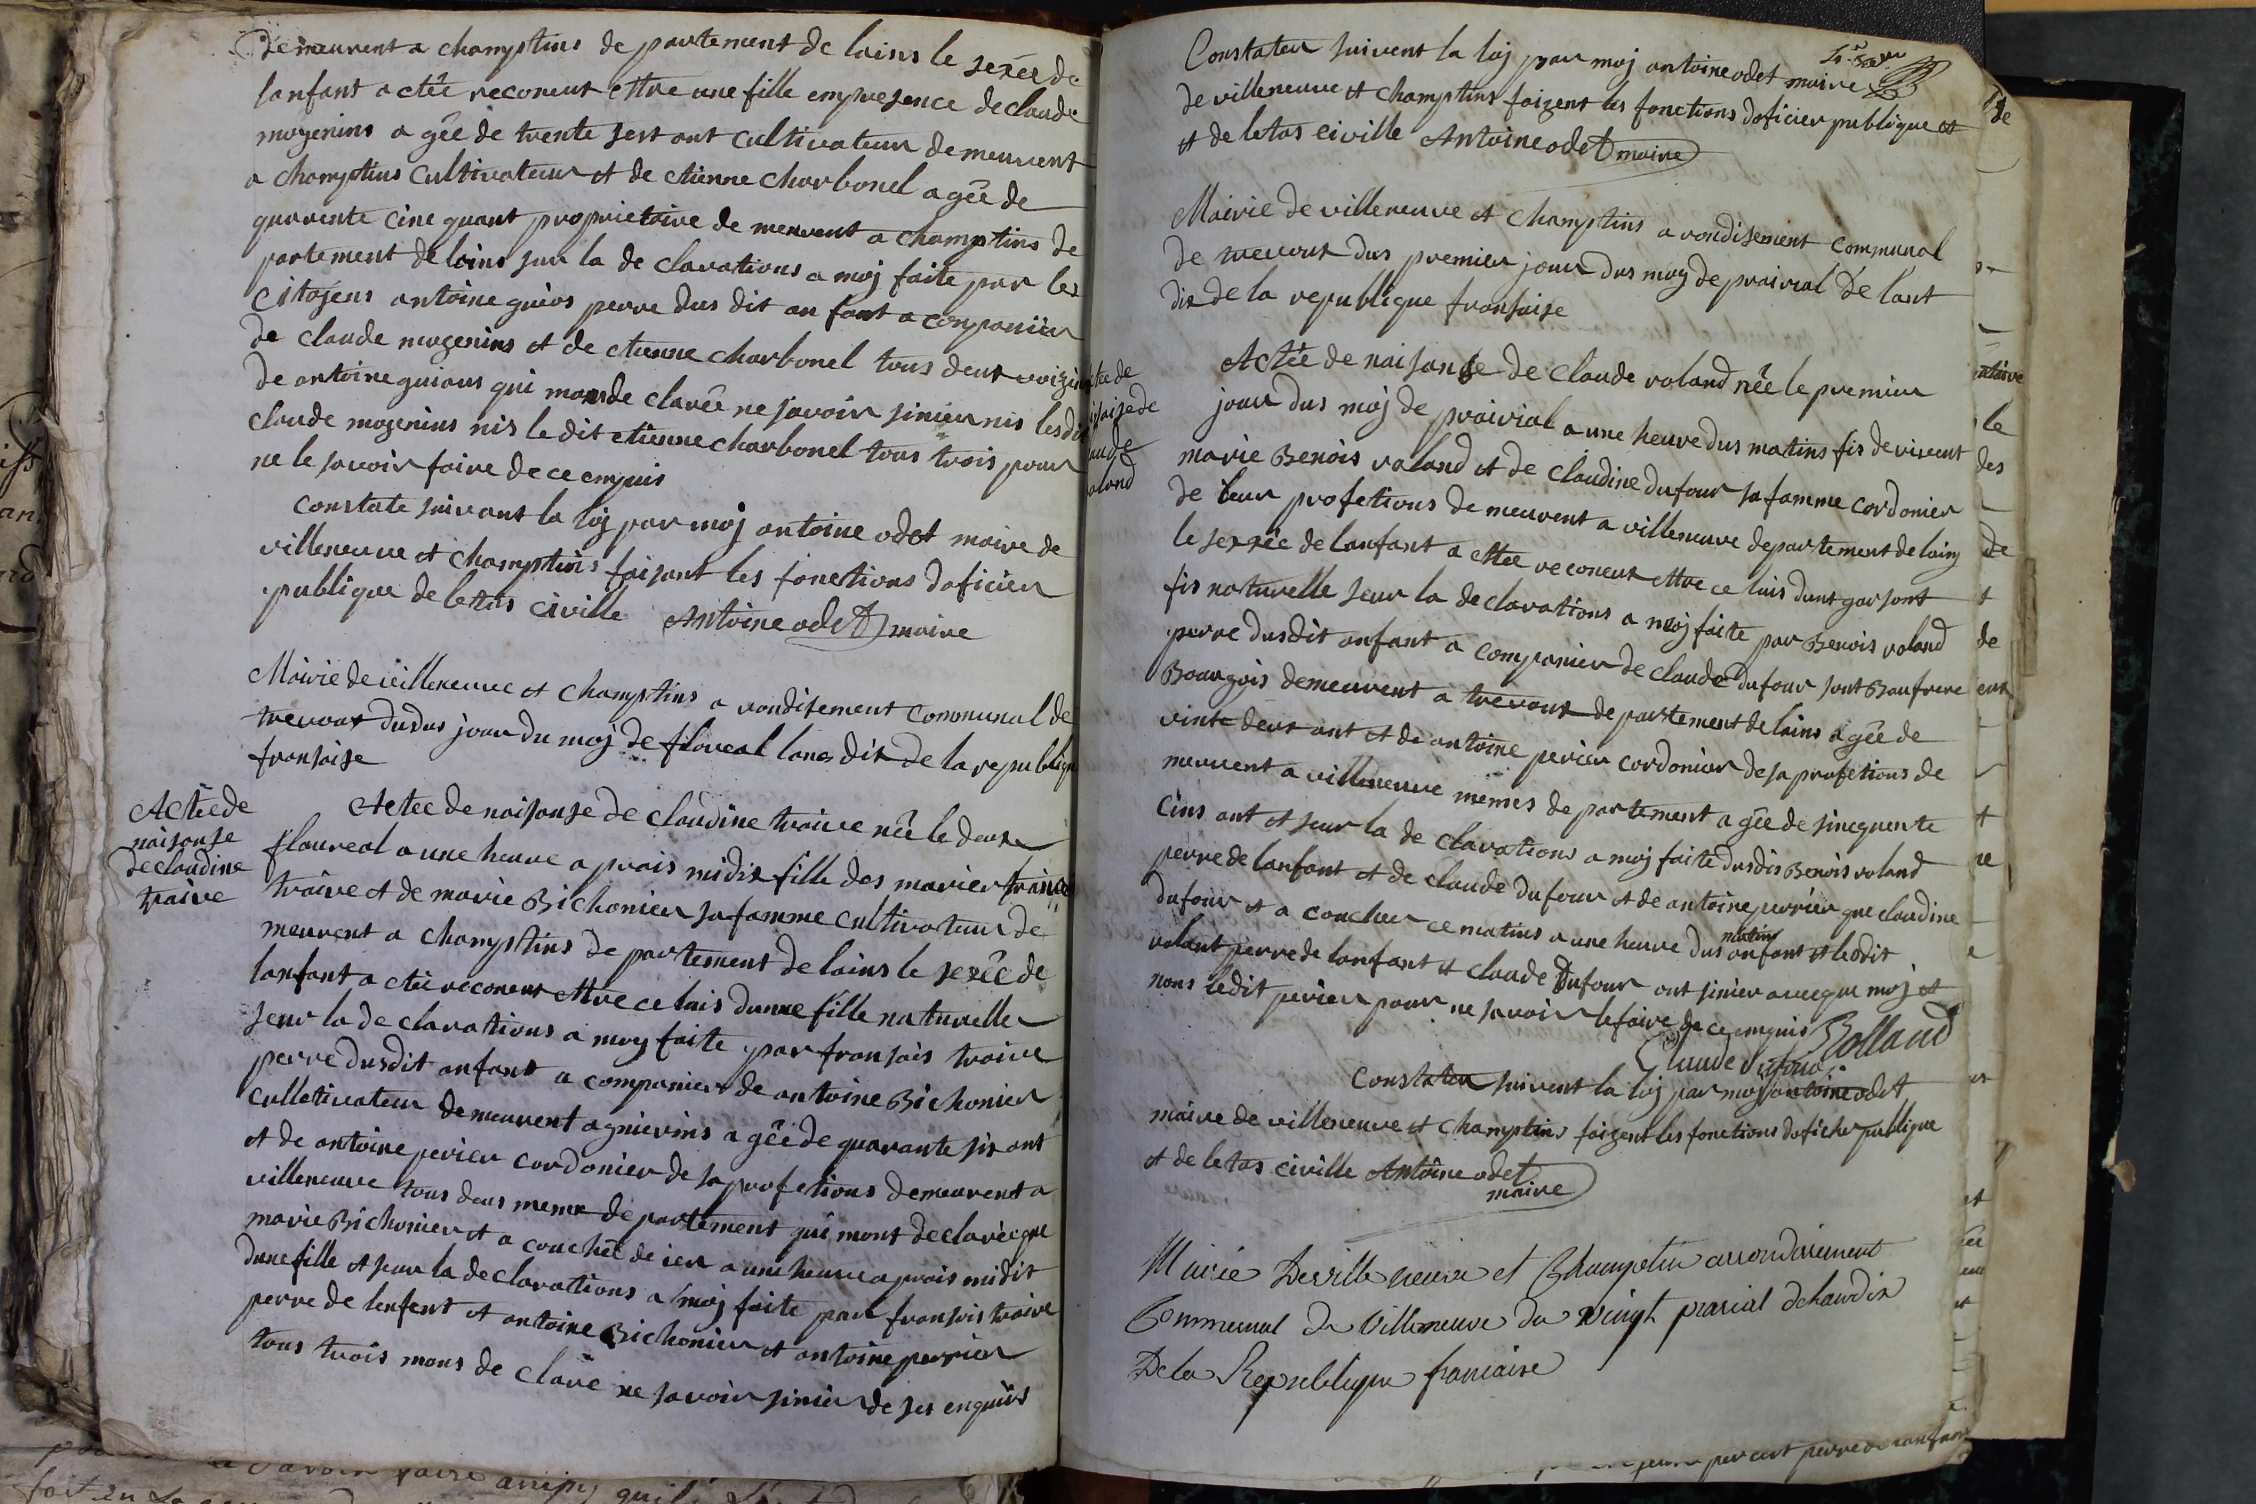 demeurent a champtins de partement de lains le sexée de
lanfant a etée reconeut ettre une fille empresence de claude
mogenins a gée de trente sest ant cultivateur demeurent
a champtins cultivateur et de etienne charbonel a gée de
quarente cinc quant proprietaire de meurent a champtins de
partement de lains sur la de clarations a moj faite par les
citojens antoine guios perre dus dit an fant a companier
de claude mogenins et de etienne charbonel tous deux voizin
de antoine guions qui mons de claréé ne savoir sinier nis lesdit
claude mogenins nis le dit etienne charbonel tous trois pour
ne le savoir faire de ce empuis
constate suivant la loj par moj antoine odet maire de
villeneuve et champtins faisant les fonctions daficier
publique de letas civille Antoine odet maire
Mairie de villeneuve et champtins a rondisement communal de
trevout dudus jour du moj de floreal lans dix de la republique
fransaise
Actée de
naisanse
de claudine
traive
Actee de naisanse de claudine traive née le deuse
flaureal a une heure a prais midis fille des marier franse
traive et de marie Bichonier sa famme cultivateur de
meurent a champtins de partement de lains le sexée de
lanfant a etée reconeus ettre ce lais dunne fille naturelle
seur la de clarations a moy faite par fransais traive
perre dusdit anfant a companier de antoine Bichonier
cultivateur demeurent agnierins a gée de quarante six ant
et de antoine perier cordonier de sa profetions demeurent a
villeneuve tous deus meme de partement qui mont declarée que
marie Bichonier et a couchée de ier a une heure a prais midit
dune fille et seur la declarations a moj faite par fransois traive
perre de lenfent et antoine Bichonier et antoine perrier
tous trois mons de clare ne savoir sinier de ses enquis
Constater suivent la loj par moj antoine odet maire
de villeneuve et champtins faizent les fonctions daficier publique et
et de letas civille Antoine odet maire
Mairie de villeneuve et champtins a rondisement communal
de trevout dus premier jour dus moy de prairial de lant
dix de la republique fransaise
Actée de naisanse de claude roland née le premier
jour dus moj de prairial a une heure dus matins fis de vivent
marie Benois roland et de claudine dufour sa famme cordonier
de leur profetions de meurent a villeneuve departement de lains
le sexsée de lanfant a ettee reconeut ettre ce luis dunt garsont
fis naturelle seur la declarations a moj faite par Benois roland
perre dusdit anfant a companier de claude dufour sont Baufrere
Bourgois demeurent a trevout de partement de lains a gée de
vint deux ant et de antoine perier cordonier de sa profetions de
meurent a villeneuve memes de partement a gée de sincquente
cins ant et seur la de clarations a moj faite dusdis Benois roland
perre de lanfant et de claude dufour et de antoine perrier que claudine
dufour et a coucher ce matins a une heure dus matins anfant et ledit
rolant perre de lanfant et claude dufour ont sinier avecque moj et
nons ledit perier pour ne savoir le faire de ce empuis Rolland
Claude dufour
Constater suivent la loj par moj antoine odet
maire de villeneuve et champtins faizent les fonctions daficher publique
et de letas civille Antoine odet
maire
Mairie De ville neuve et Champtin arrondisement
Communal De Villeneuve du vingt prarial de landix
De la Republique francaise